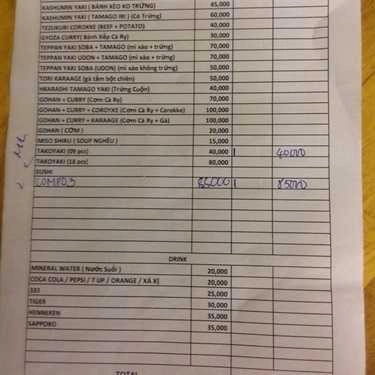 KASHUMIN YAKI ( BÁNH XÈO KO TRỨNG) 45,000
KASHUMIN YAKI ( TAMAGO IRI ) (Có Trứng) 60,000
TEZUKURI COROKKE (BEEF + POTATO) 40,000
GYOZA CURRY( Bánh Xếp Cà Ry) 30,000
TEPPAN YAKI SOBA + TAMAGO (mì xào + trứng) 70,000
TEPPAN YAKI UDON + TAMAGO (mì xào + trứng) 70,000
TEPPAN YAKI SOBA (UDON) (mì xào không trứng) 50,000
TORI KARAAGE (gà tẩm bột chiên) 50,000
HIRARASHI TAMAGO YAKI (Trứng Cuộn) 40,000
GOHAN + CURRY (Cơm Cà Ry) 70,000
GOHAN + CURRY + COROYKE (Cơm Cà Ry + Carokke) 100,000
GOHAN + CURRY + KARAAGE (Cơm Cà Ry + Gà) 100,000
GOHAN ( CƠM ) 20,000
MISO SHIRU ( SOUP NGHÊU ) 15,000
TAKOYAKI (09 pcs) 40,000 1 40000
TAKOYAKI (18 pcs) 80,000
SUSHI
COMPO 3 85000 1 85000
DRINK
MINERAL WATER ( Nước Suối ) 20,000
COCA COLA / PEPSI / 7 UP / ORANGE / XÁ XỊ 20,000
333 25,000
TIGER 30,000
HENNEKEN 35,000
SAPPORO 35,000
TOTAL